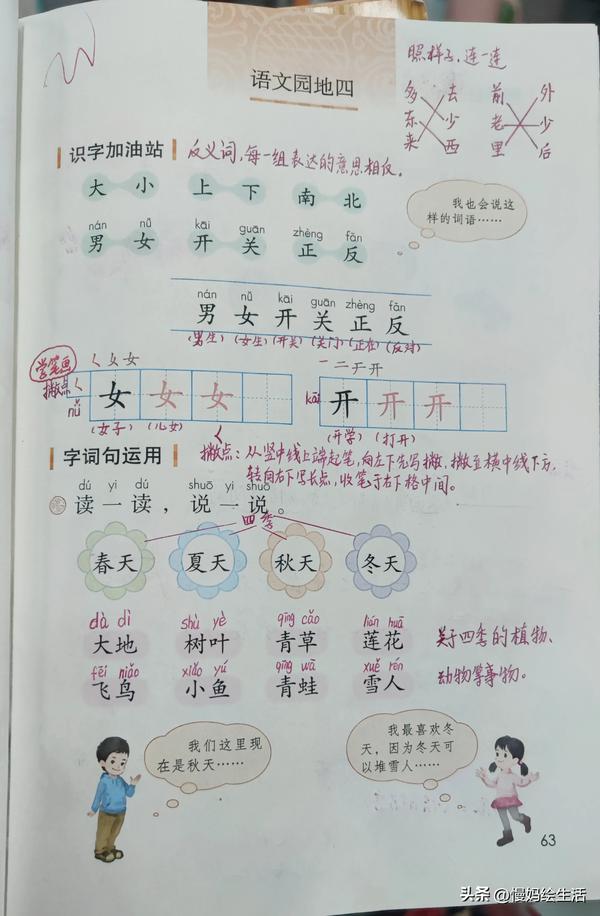 语文园地四
照样子,连一连
多 去 前 外
东 少 老 少
来 西 里 后
识字加油站 反义词,每一组表达的意思相反。
大 小 上 下 南 北
我也会说这
样的词语……
nán nǚ kāi guān zhèng fǎn
男 女 开 关 正 反
nán nǚ kāi guān zhèng fǎn
男 女 开 关 正 反
(男生) (女生) (开关) (关门) (正在) (反对)
学笔画 ㄑ 女 女 一 二 于 开
撇点ㄑ
nǚ 女 女 女 kāi 开 开 开
(女子) (儿女) (开学) (打开)
ㄑ
字词句运用 撇点:从竖中线上端起笔,向左下先写撇,撇至横中线下方,
转向右下写长点,收笔于右下格中间。
dú yi dú shuō yi shuō
读一读,说一说。
四季
春天 夏天 秋天 冬天
dà dì shù yè qīng cǎo lián huā
大地 树叶 青草 莲花
关于四季的植物、
fēi niǎo xiǎo yú qīng wā xuě rén
飞鸟 小鱼 青蛙 雪人
动物等事物。
我们这里现
在是秋天……
我最喜欢冬
天,因为冬天可
以堆雪人……
63
头条 @慢妈绘生活